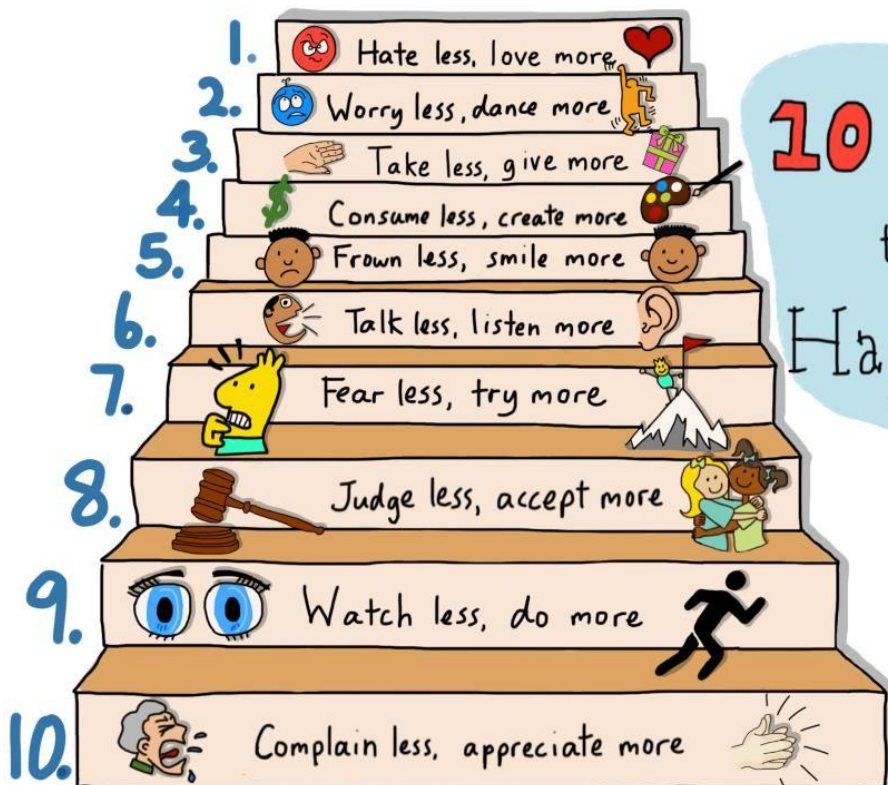 1. Hate less, love more
2. Worry less, dance more
3. Take less, give more
4. Consume less, create more
5. Frown less, smile more
6. Talk less, listen more
7. Fear less, try more
8. Judge less, accept more
9. Watch less, do more
10. Complain less, appreciate more
10